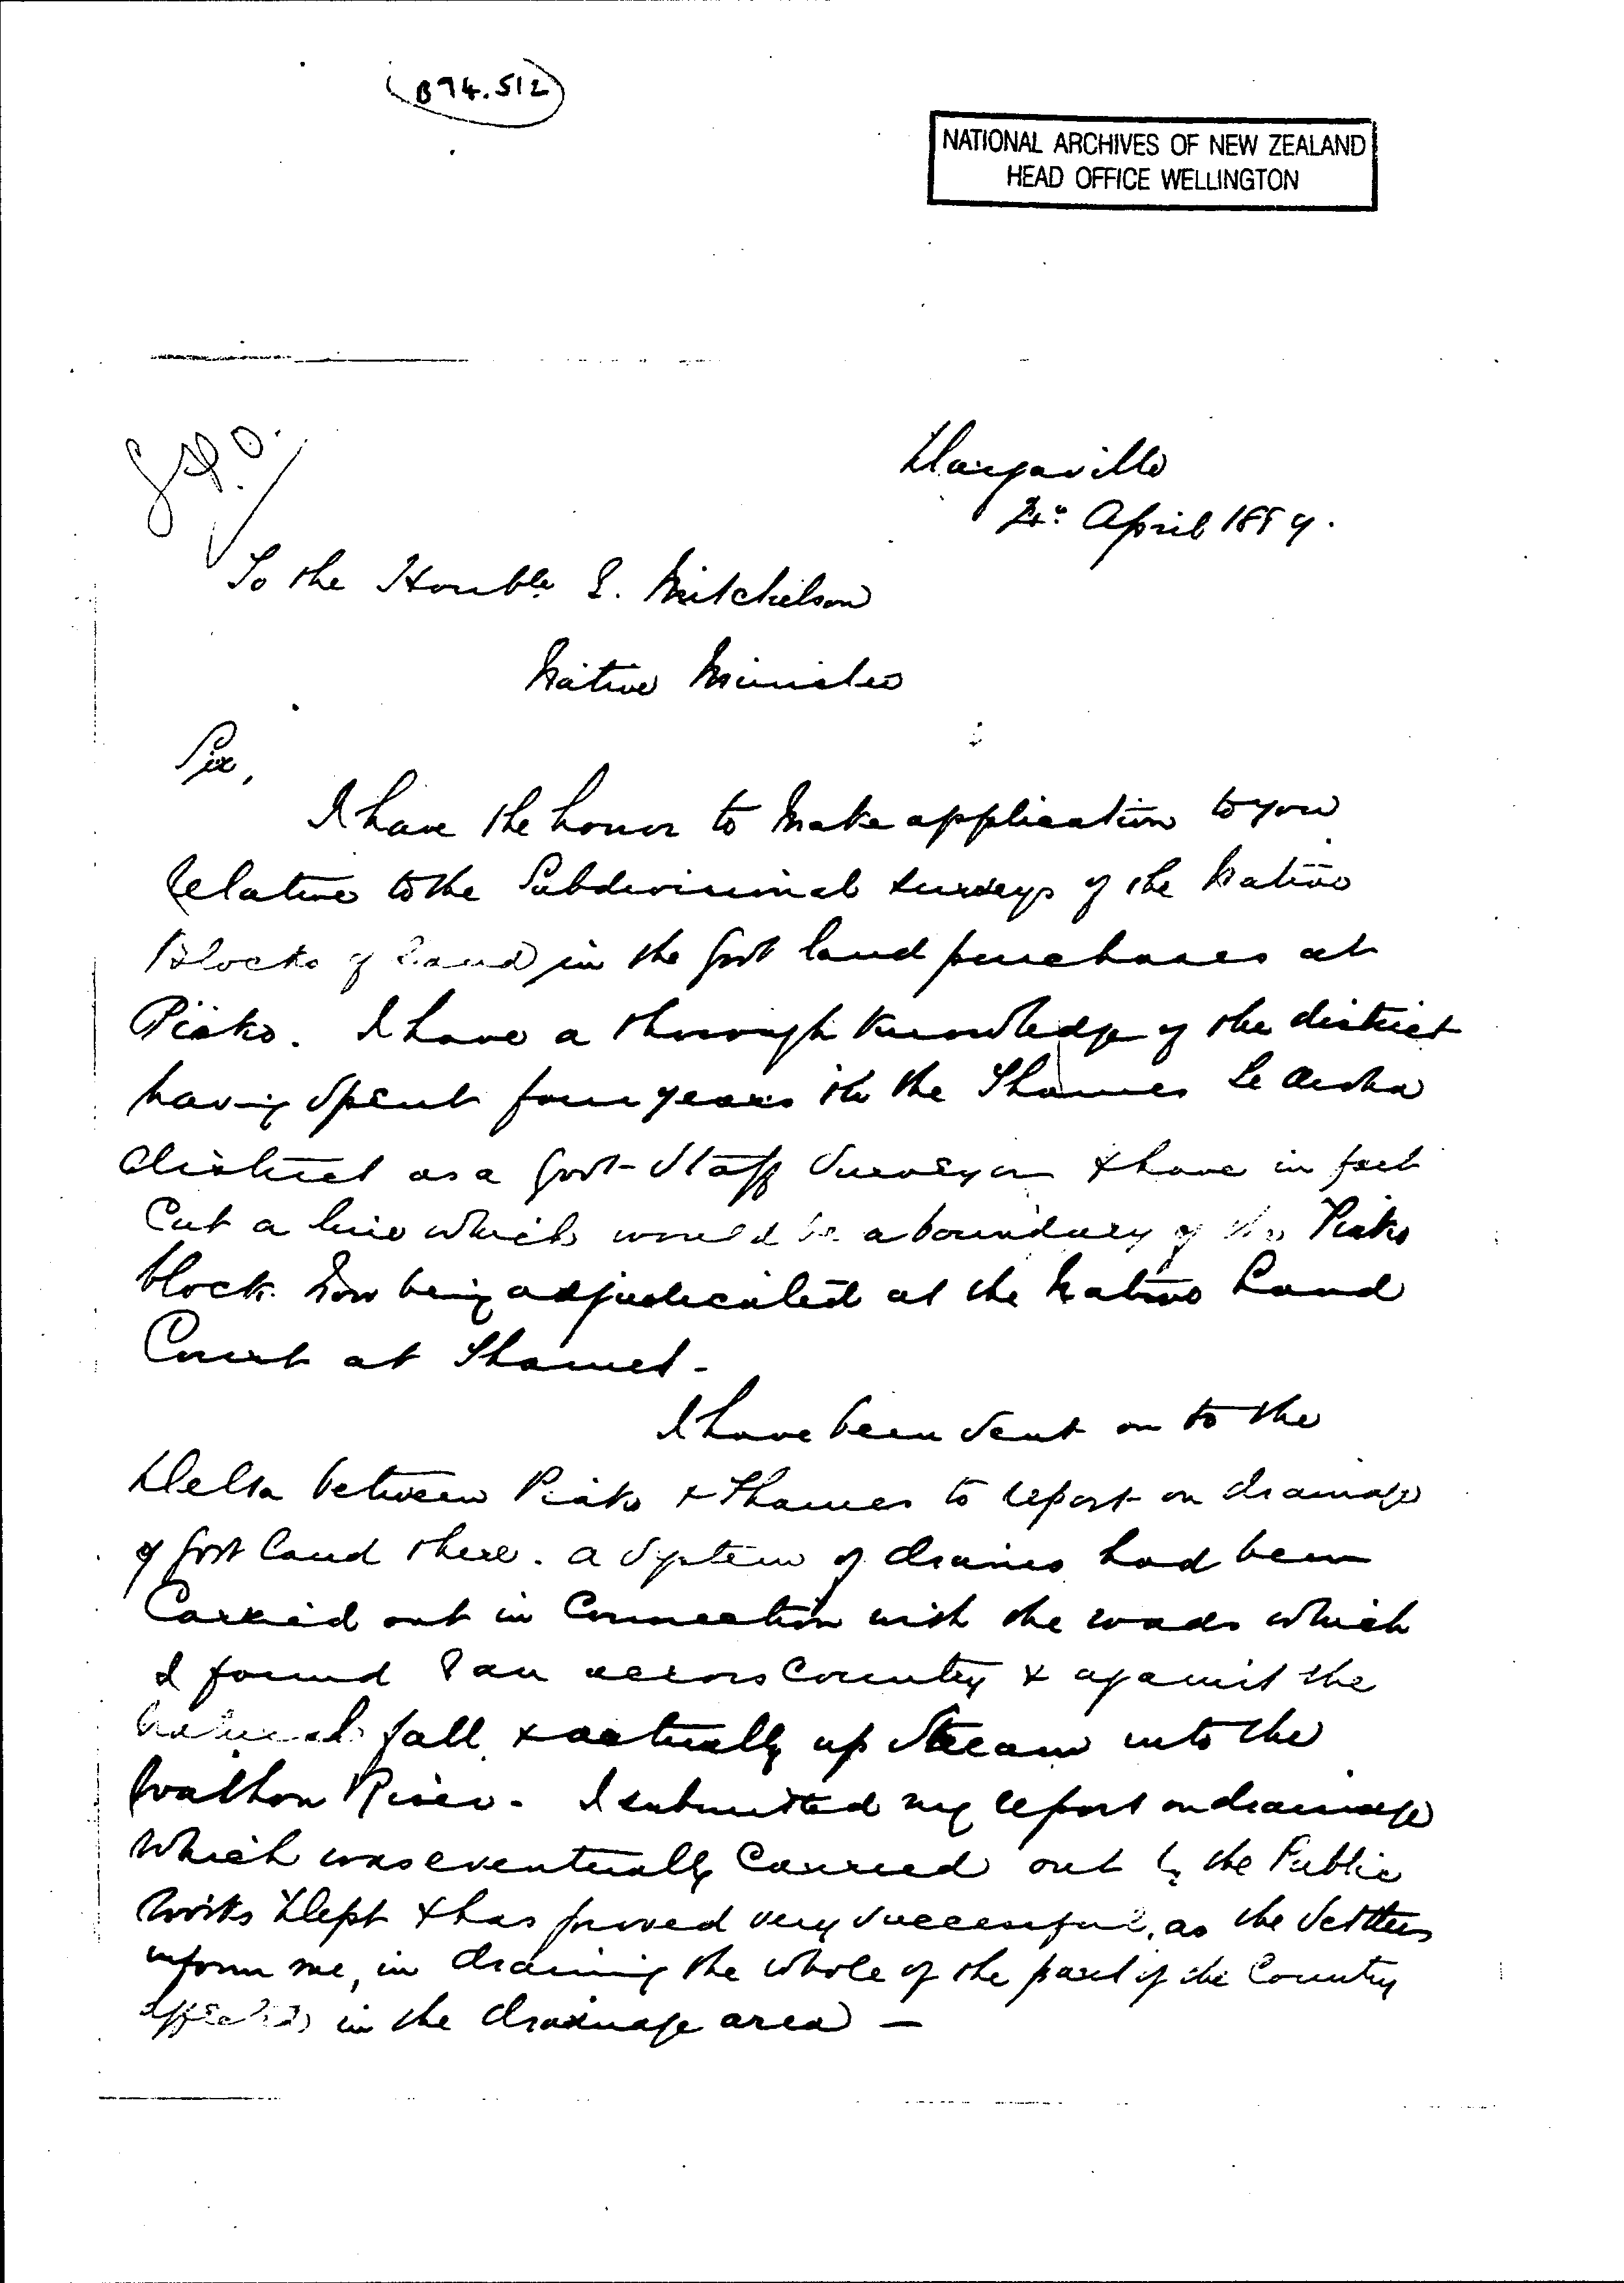 B94.512
NATIONAL ARCHIVES OF NEW ZEALAND
HEAD OFFICE WELLINGTON
Dargaville
April 1889.
To the Honble E. Mitchelson
Native Minister
Sir,
I have the honor to make application to you
relative to the Subdivisional surveys of the Native
Blocks of land in the Govt land purchases at
Piako. I have a thorough knowledge of the district
having spent four years in the Thames Te Aroha
district as a Govt Staff Surveyor & have in fact
Cut a line which would be a boundary of the Piako
block now being adjudicated at the Native Land
Court at Thames -
I have been sent on to the
Delta between Piako & Thames to report on drainage
of Govt land there. a System of drains had been
Carried out in Connection with the roads which
I found ran across Country & against the
natural fall & actually up Stream into the
Waihou River - I submitted my report on drainage
which was eventually Carried out by the Public
Works Dept & has proved very successful, as the Settlers
inform me, in draining the whole of the part of the Country
affected in the drainage area -